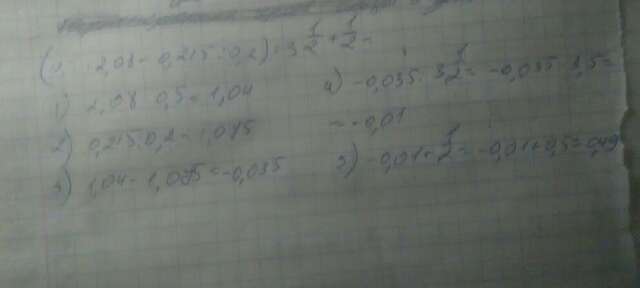 2,08 - 0,215 : 0,2) : 3 1/2 + 1/2 =
1) 2,08 · 0,5 = 1,04
2) 0,215 : 0,2 = 1,075
3) 1,04 - 1,075 = -0,035
4) -0,035 : 3 1/2 = -0,035 : 3,5 =
= -0,01
5) -0,01 + 1/2 = -0,01 + 0,5 = 0,49